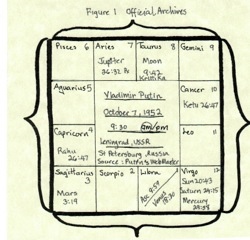 Figure 1 Official, Archives
Pisces 6
Aries 7
Taurus 8
Gemini 9
Jupiter
26:32 Rx
Moon
9:42
Krittika
Aquarius 5
Vladimir Putin
October 7, 1952
9:30 am/pm
Leningrad, USSR
St Petersburg, Russia
Source: Putin's WebMaster
Cancer 10
Ketu 26:47
Capricorn 4
Rahu
26:47
Leo 11
Sagittarius
3
Mars
3:19
Scorpio 2
Libra 1
Asc 9:59
Venus
Virgo 12
Sun 20:43
Saturn 24:15
Mercury